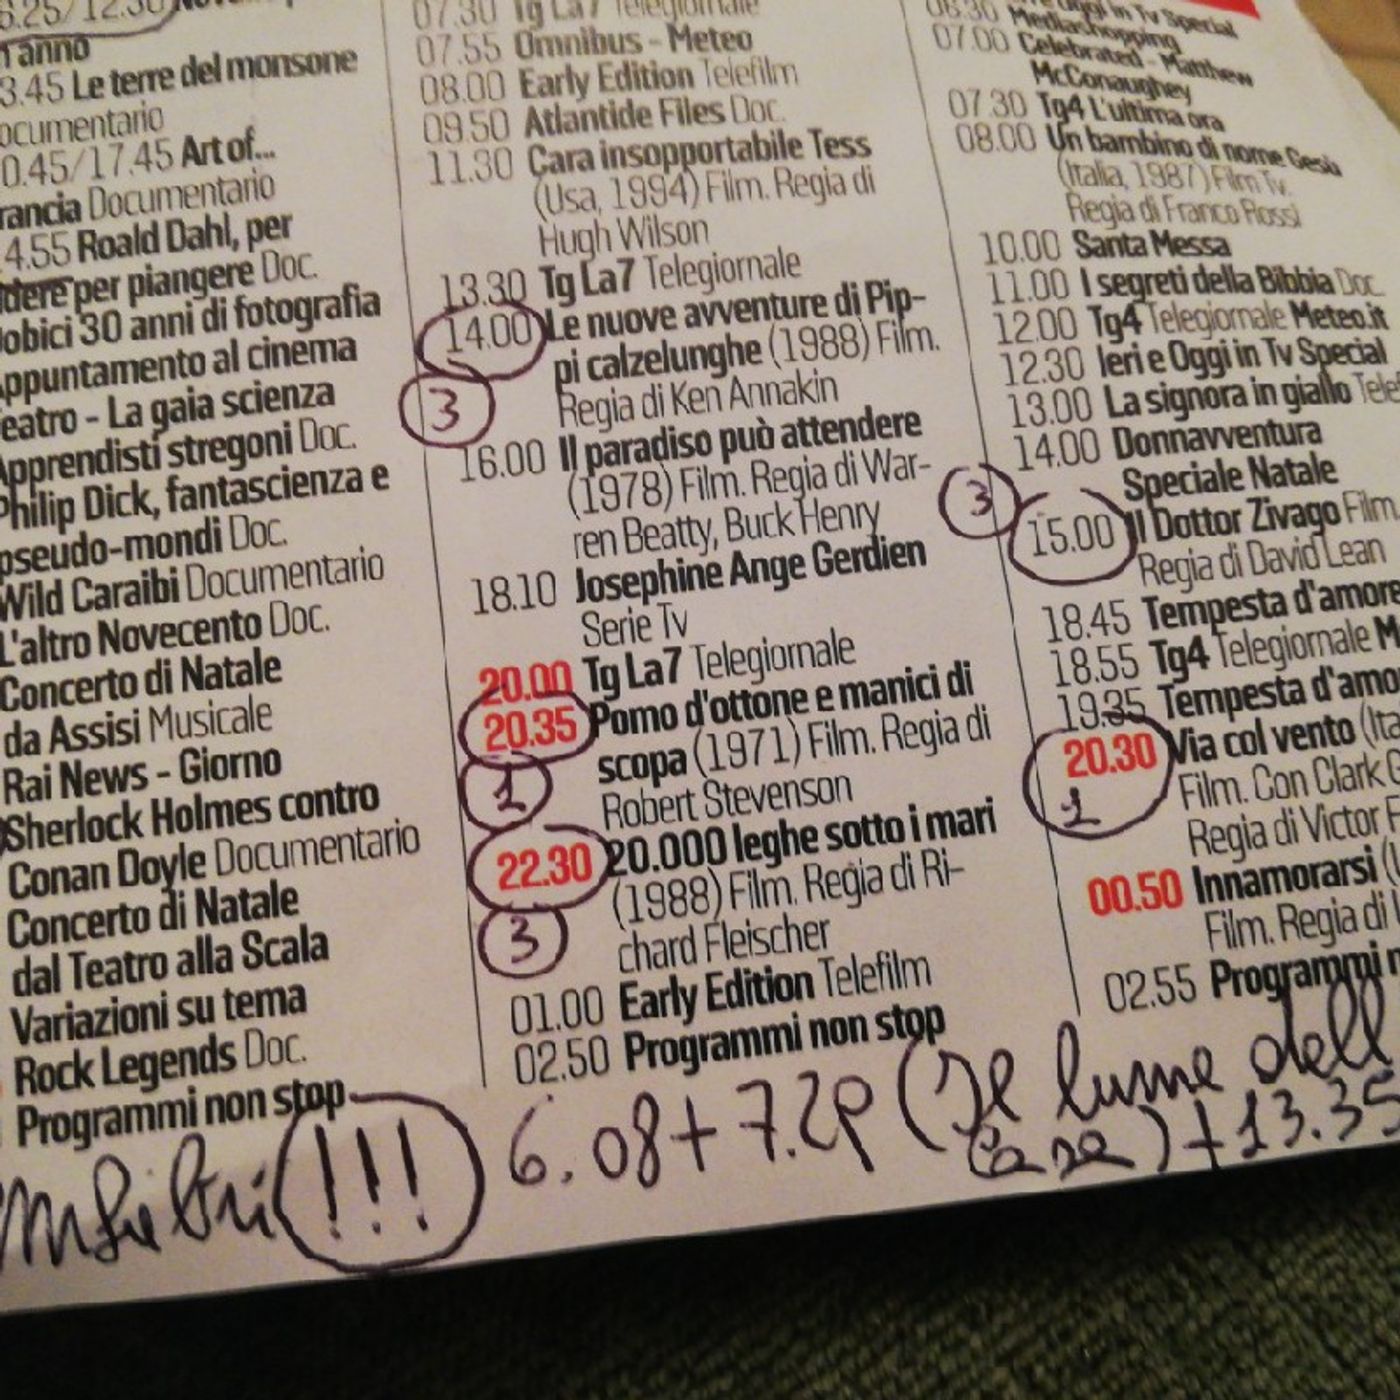 6.25/12.30
n anno
3.45 Le terre del monsone
ocumentario
0.45/17.45 Art of...
rancia Documentario
4.55 Roald Dahl, per
idere per piangere Doc.
obici 30 anni di fotografia
Appuntamento al cinema
Teatro - La gaia scienza
Apprendisti stregoni Doc.
Philip Dick, fantascienza e
pseudo-mondi Doc.
Wild Caraibi Documentario
L'altro Novecento Doc.
Concerto di Natale
da Assisi Musicale
Rai News - Giorno
Sherlock Holmes contro
Conan Doyle Documentario
Concerto di Natale
dal Teatro alla Scala
Variazioni su tema
Rock Legends Doc.
Programmi non stop
07.30 Tg La7 Telegiornale
07.55 Omnibus - Meteo
08.00 Early Edition Telefilm
09.50 Atlantide Files Doc.
11.30 Cara insopportabile Tess
(Usa, 1994) Film. Regia di
Hugh Wilson
13.30 Tg La7 Telegiornale
14.00 Le nuove avventure di Pip-
pi calzelunghe (1988) Film.
3 Regia di Ken Annakin
16.00 Il paradiso può attendere
(1978) Film. Regia di War-
ren Beatty, Buck Henry
18.10 Josephine Ange Gerdien
Serie Tv
20.00 Tg La7 Telegiornale
20.35 Pomo d'ottone e manici di
1 scopa (1971) Film. Regia di
Robert Stevenson
22.30 20.000 leghe sotto i mari
(1988) Film. Regia di Ri-
3 chard Fleischer
01.00 Early Edition Telefilm
02.50 Programmi non stop
06.30 Ieri e Oggi in Tv Special
Mediashopping
07.00 Celebrated - Matthew
McConaughey
07.30 Tg4 L'ultima ora
08.00 Un bambino di nome Gesù
(Italia, 1987) Film Tv.
Regia di Franco Rossi
10.00 Santa Messa
11.00 I segreti della Bibbia Doc.
12.00 Tg4 Telegiornale Meteo.it
12.30 Ieri e Oggi in Tv Special
13.00 La signora in giallo Telef
14.00 Donnavventura
Speciale Natale
3 15.00 Il Dottor Zivago Film
Regia di David Lean
18.45 Tempesta d'amore
18.55 Tg4 Telegiornale M
19.35 Tempesta d'amo
20.30 Via col vento (Ita
1 Film. Con Clark G
Regia di Victor F
00.50 Innamorarsi (U
Film. Regia di
02.55 Programmi n
!!! 6.08 + 7.29 (Il lume dell
casa) + 13.35